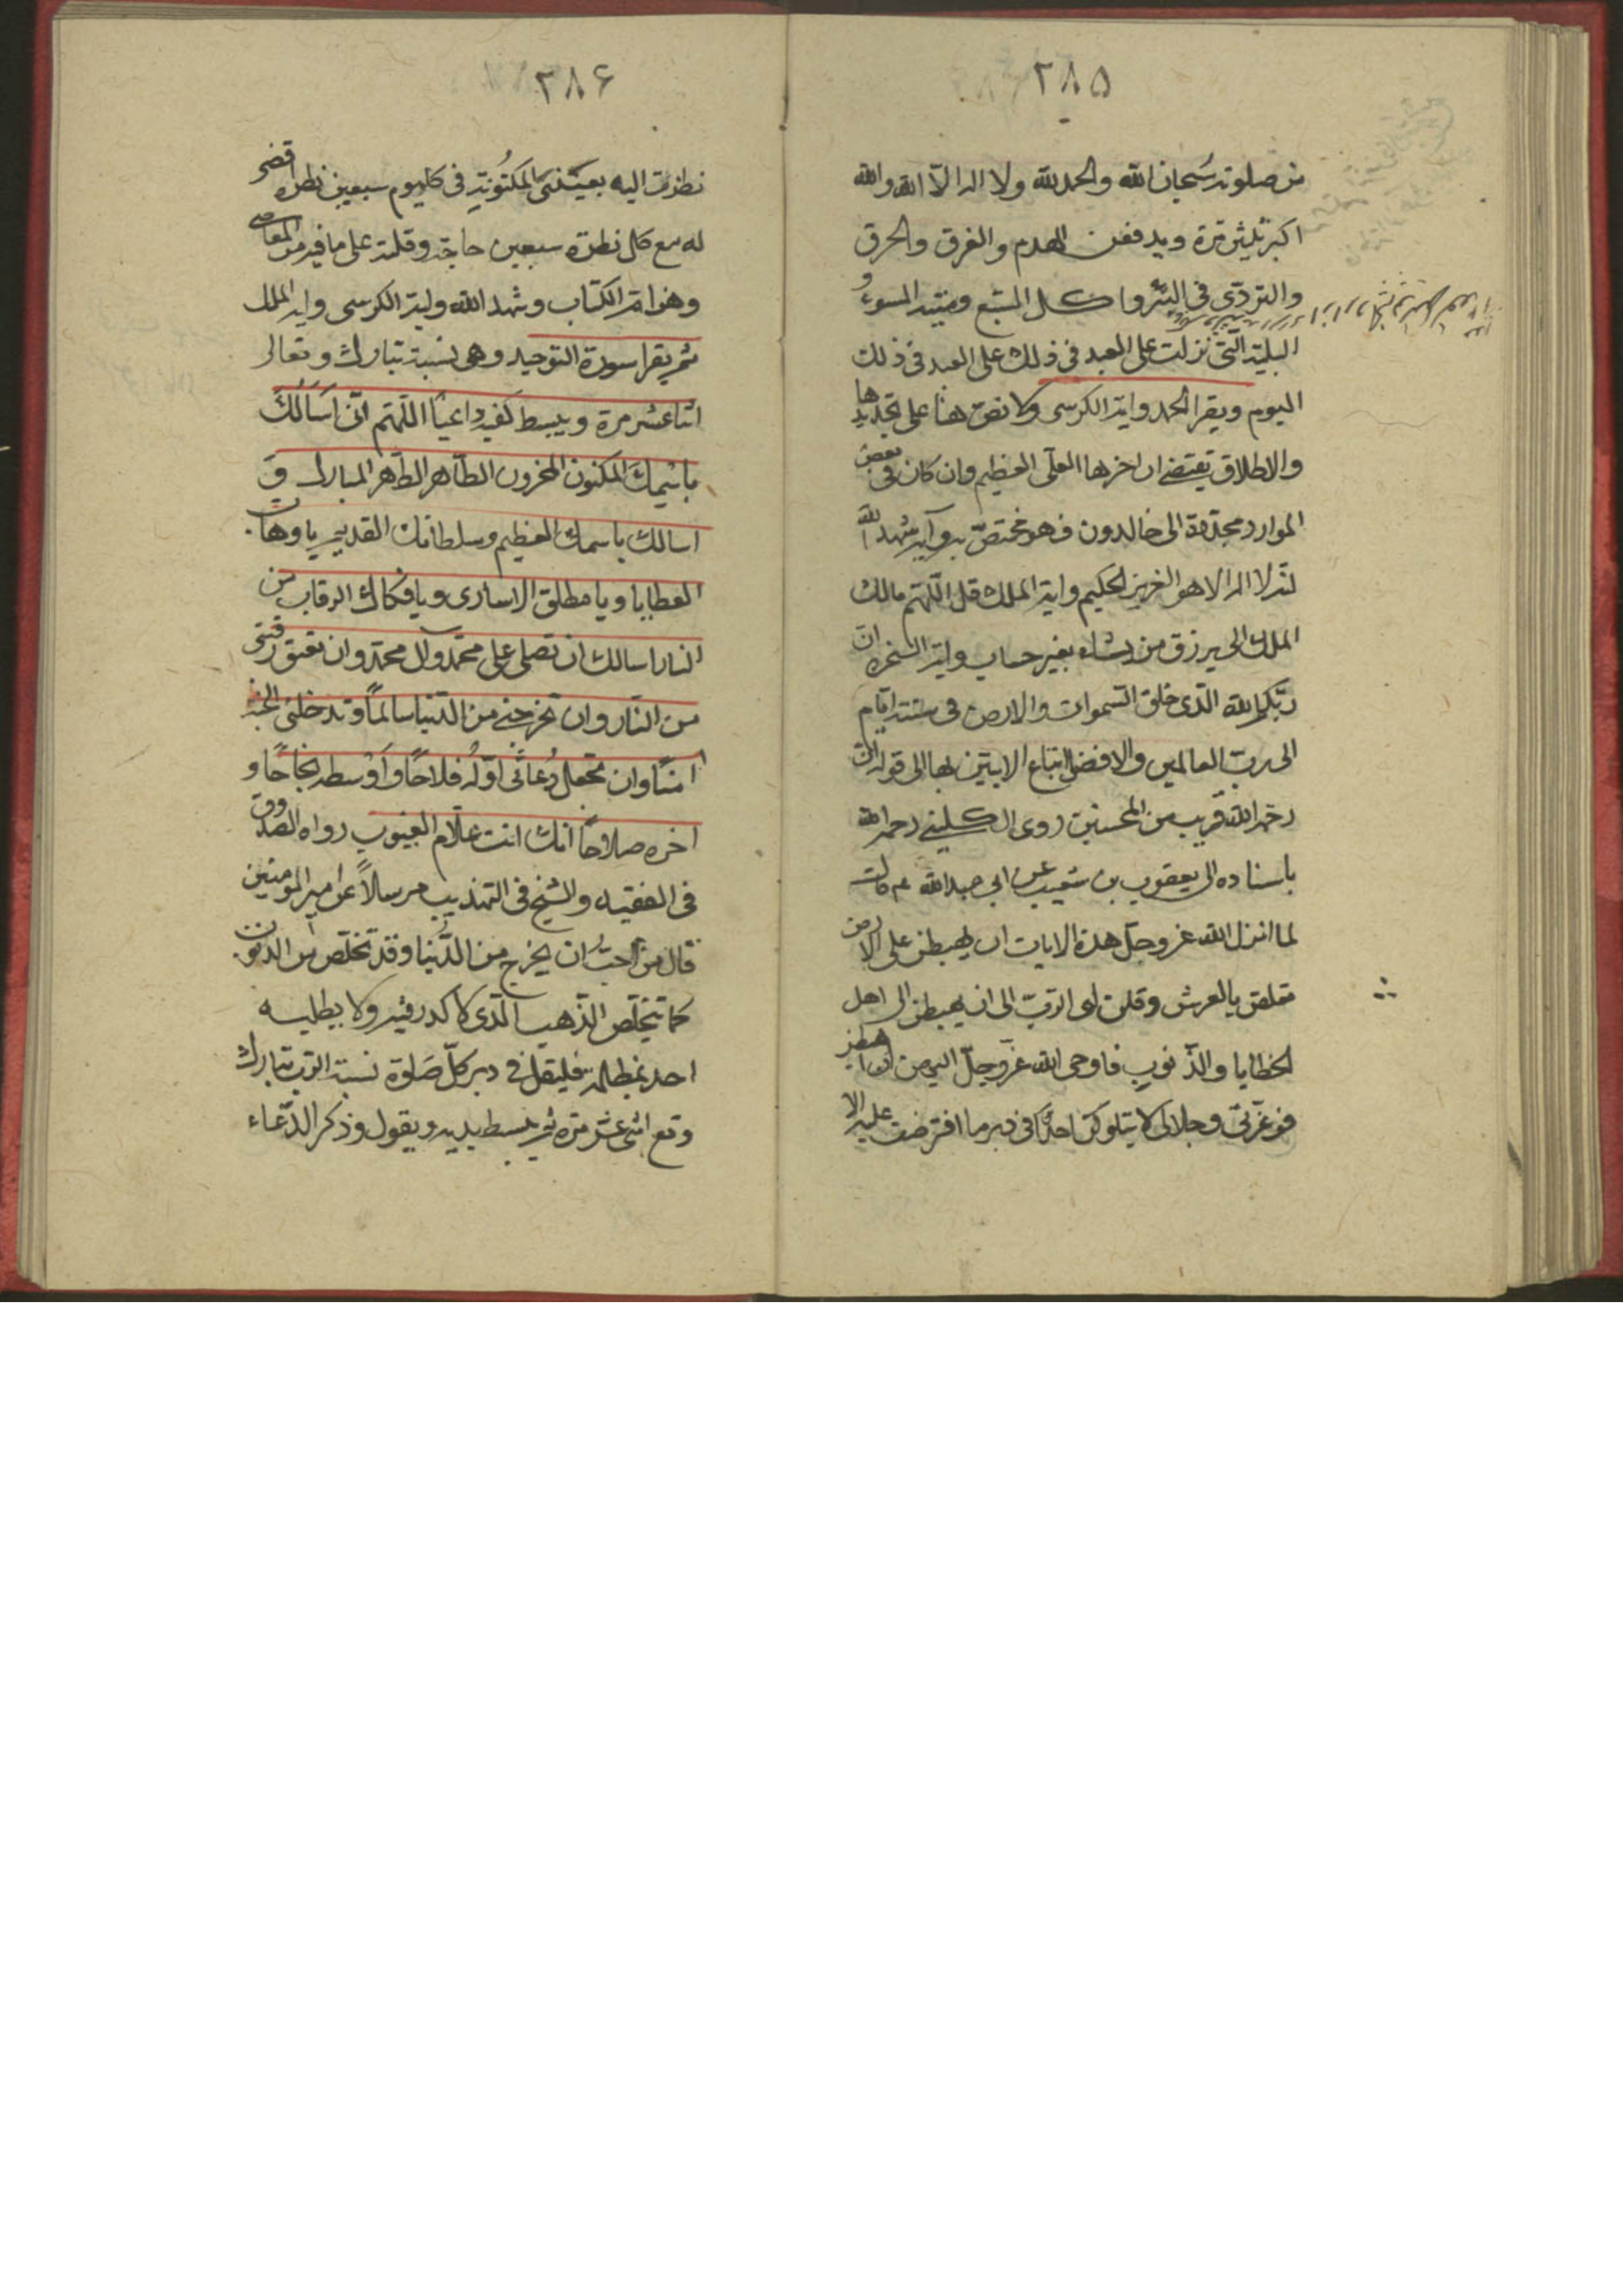 ۲۸۵
من صلوته سبحان الله والحمد لله ولا اله الا الله والله
اكبر ثلثين مرة ويدفعن الهدم والغرق والحرق
والتردّى فى البئر واكل السبع وميتة السوء و
البلية التى نزلت على العبد فى ذلك على العبد فى ذلك
اليوم ويقرا الحمد واية الكرسى ولا نص هنا على تحديدها
والاطلاق يقتضى ان اخرها العلى العظيم وان كان فى بعض
الموارد محدودة الى خالدون فهو مختص به وآية شهد الله
انه لا اله الا هو العزيز الحكيم واية الملك قل اللهم مالك
الملك الى يرزق من يشاء بغير حساب واية السخرة ان
ربكم الله الذى خلق السموات والارض فى ستة ايام
الى رب العالمين والافضل اتباع الايتين بها الى قوله ان
رحمة الله قريب من المحسنين روى الكلينى رحمه الله
باسناده الى يعقوب بن شعيب عن ابى عبد الله ع قال
لما انزل الله عز وجل هذه الايات ان يهبطن على الارض
تعلقن بالعرش وقلن اى الرب الى ان يهبطن الى اهل
الخطايا والذنوب فاوحى الله عز وجل اليهن ان اهبطن
فوعزتى وجلالى لا يتلوكن احدا فى دبر ما افترضت عليه الا
۲۸۶
نظرت اليه بعينى المكنونة فى كل يوم سبعين نظرة قضى
له مع كل نظرة سبعين حاجة وقلت على ما فيه من المعاصى
وهو ام الكتاب وشهد الله واية الكرسى واية الملك
ثم يقرا سورة التوحيد وهى نسبة تبارك وتعالى
اثنا عشر مرة ويبسط كفيه داعيا اللهم انى اَسَالُكَ
باسْمِكَ المكنون المخزون الطّاهر الطّهر المبارك وَ
اسالك باسمك العظيم وسلطانك القديم يا وهاب
العطايا ويا مطلق الاسارى ويا فكاك الرقاب من
النار اسالك ان تصلى على محمد وآل محمد وان تعتق رقبتى
من النار وان تخرجنى من الدنيا سالماً وتدخلنى الجنة
امنًا وان تجعل دُعائى اوّله فلاحًا واَوْسطه نجاحًا و
اخره صلاحاً انك انت علّام الغيوب رواه الصدوق
فى الفقيه والشيخ فى التهذيب مرسلاً عن امير المومنين
قال من احب ان يخرج من الدُّنيا وقد تخلّص من الذنوب
كما يتخلّص الذّهب الّذى لا كدر فيه ولا يطلبه
احد بمظلمة فليقل فى دبر كلّ صَلوة نسبة الرب تبارك
وتع اثنى عشر مرة ثم يبسط يديه ويقول وذكر الدّعاء